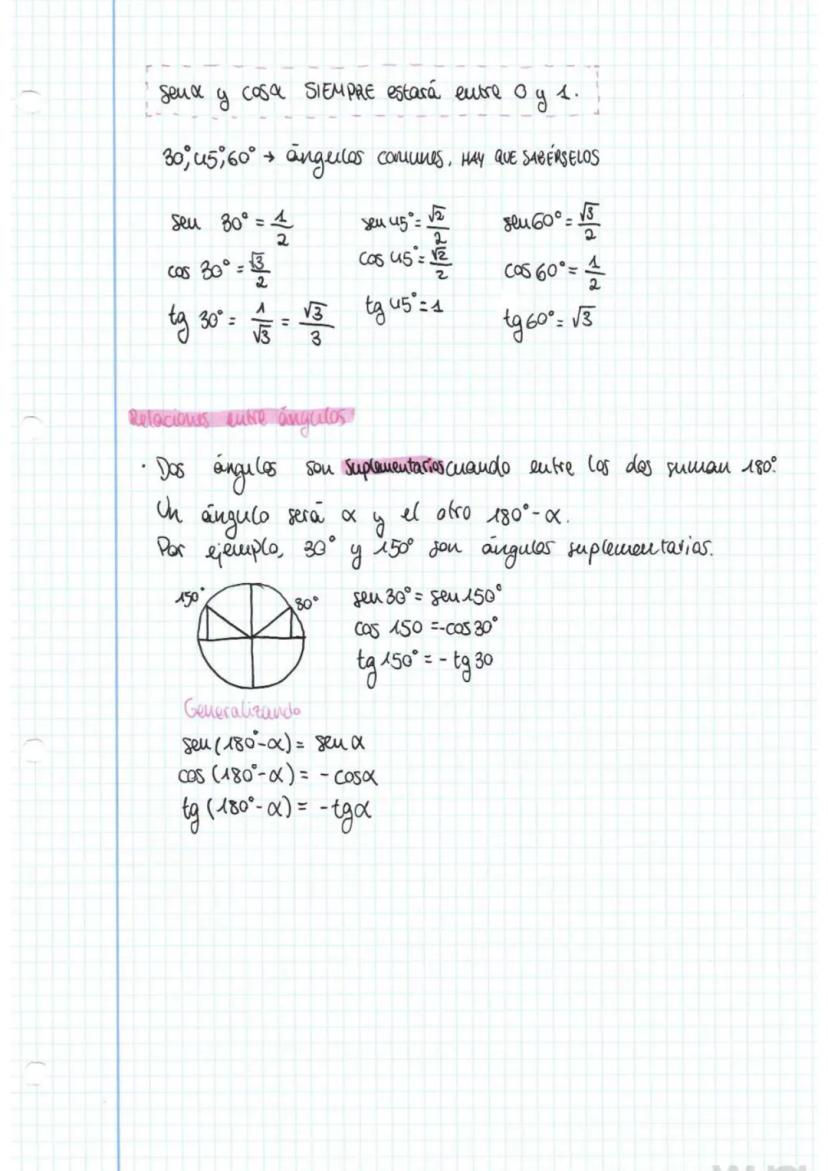 senα y cosα SIEMPRE estará entre 0 y 1.
30°, 45°, 60° → ángulos comunes, HAY QUE SABÉRSELOS
sen 30° = 1/2 sen 45° = √2/2 sen 60° = √3/2
cos 30° = √3/2 cos 45° = √2/2 cos 60° = 1/2
tg 30° = 1/√3 = √3/3 tg 45° = 1 tg 60° = √3
Relaciones entre ángulos
· Dos ángulos son suplementarios cuando entre los dos suman 180°.
Un ángulo será α y el otro 180°-α.
Por ejemplo, 30° y 150° son ángulos suplementarios.
150° 30°
sen 30° = sen 150°
cos 150 = -cos 30°
tg 150° = - tg 30
Generalizando
sen (180°-α) = sen α
cos (180°-α) = - cosα
tg (180°-α) = -tgα